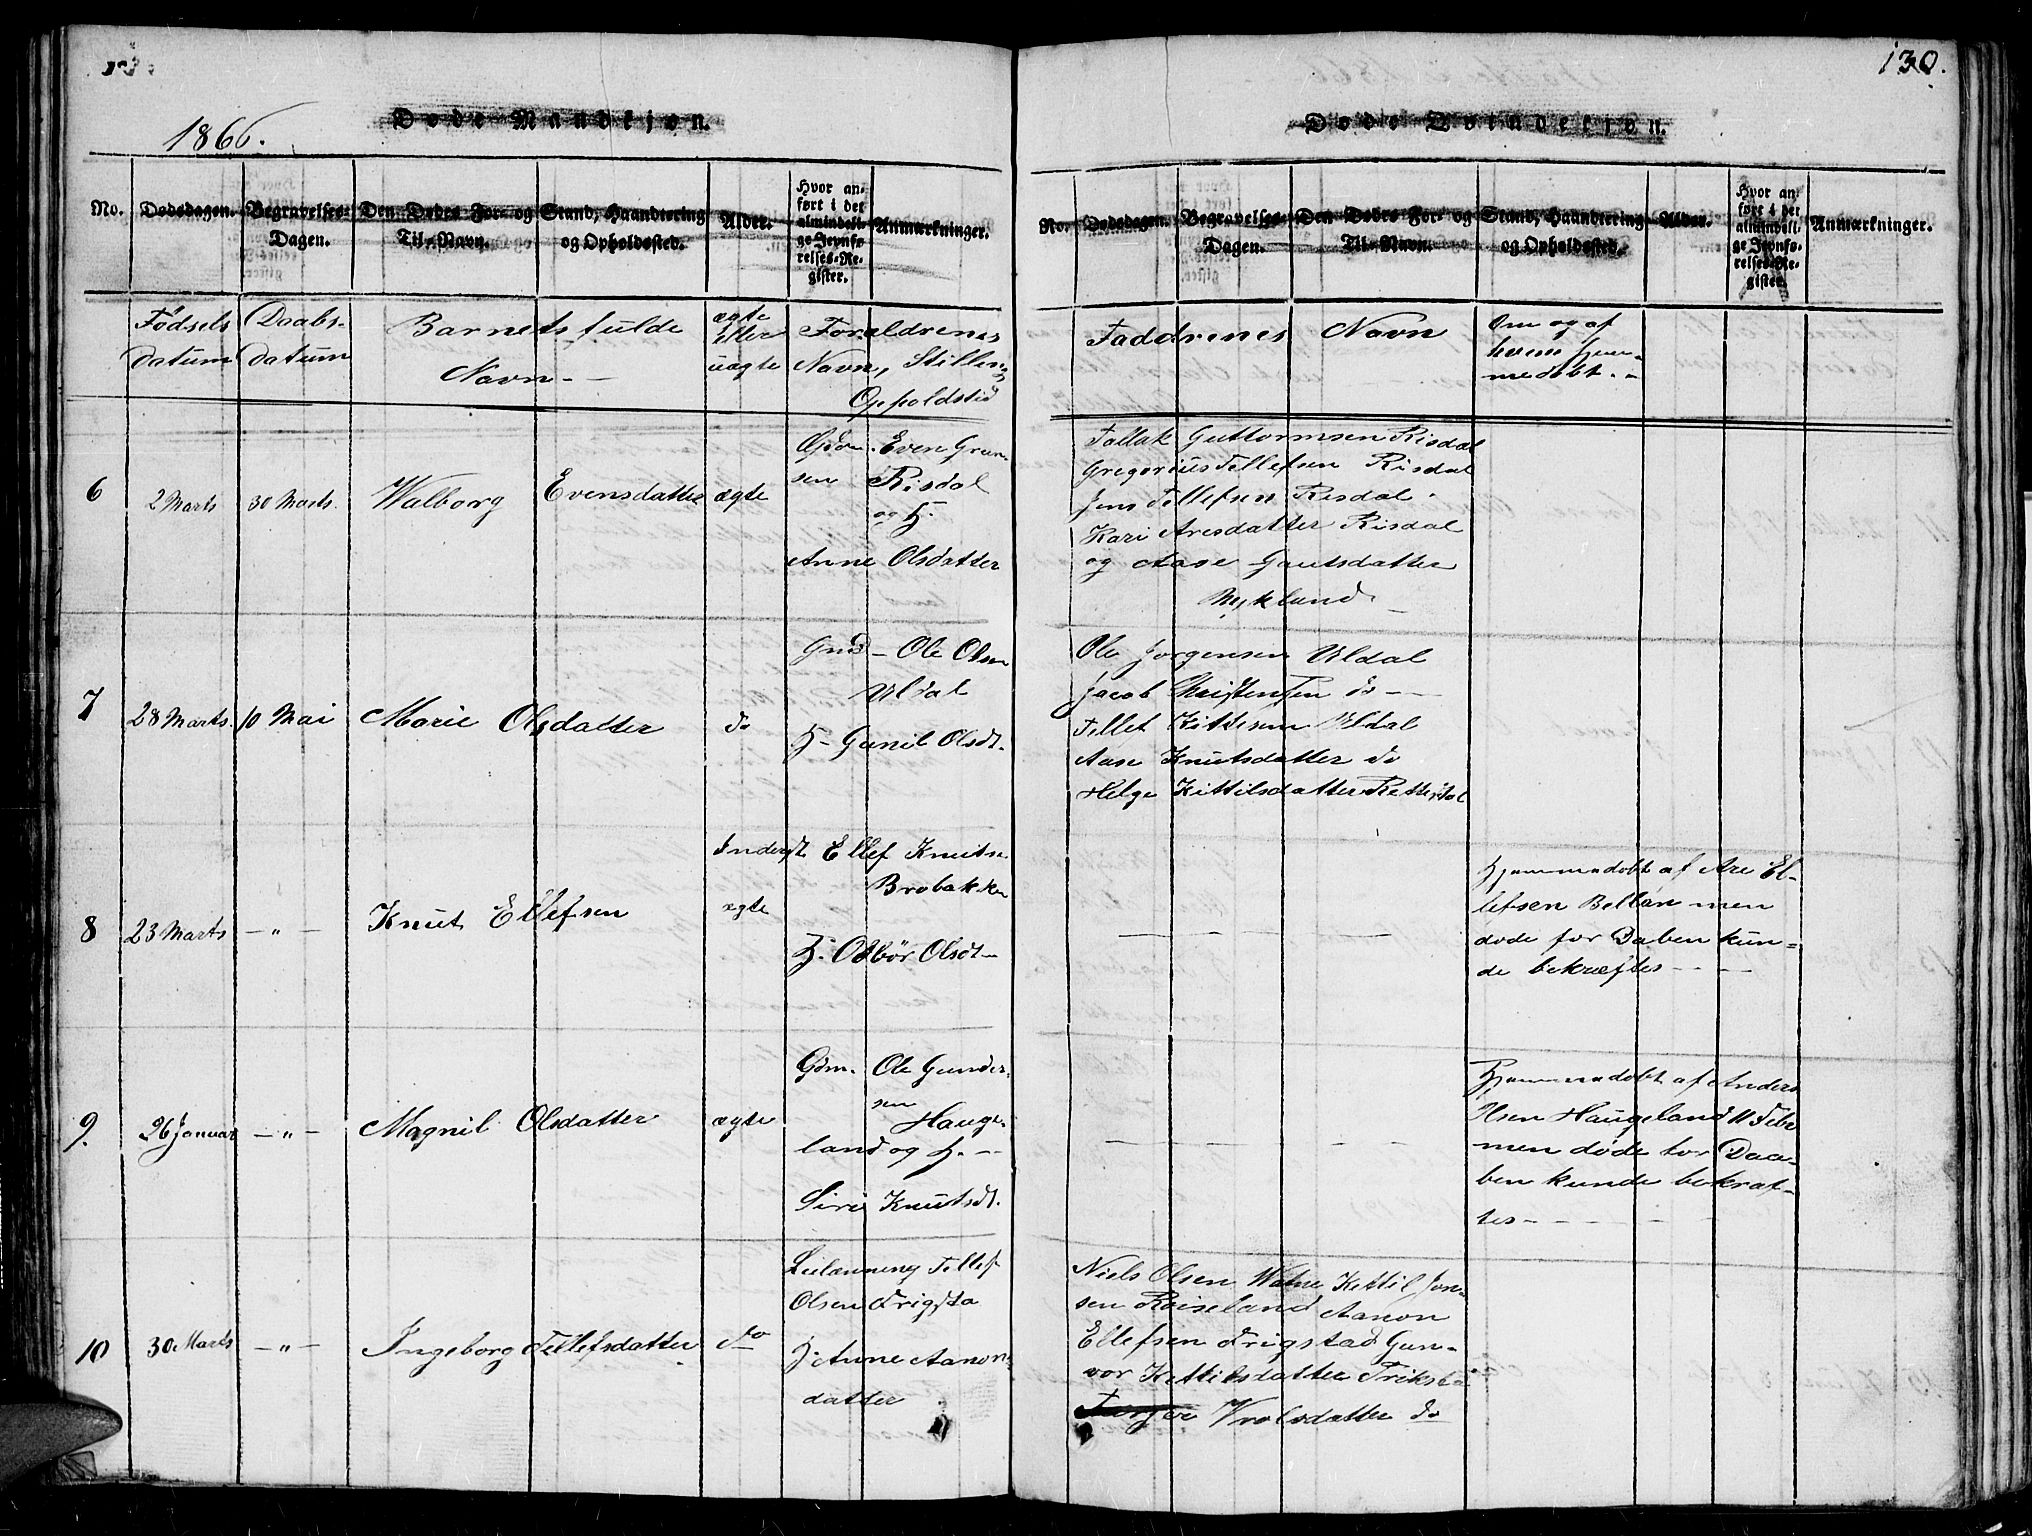 130.
1866.
Døde Mandkjøn.
Døde Qvindekjøn.
No. Dødsdagen. Begravelses-Dagen. Den Dødes For- og Til-Navn. Stand, Haandtering og Opholdssted. Alder. Hvor anført i det almindelige Jevnførelses-Register. Anmærkninger.
No. Dødsdagen. Begravelses-Dagen. Den Dødes For- og Til-Navn. Stand, Haandtering og Opholdssted. Alder. Hvor anført i det almindelige Jevnførelses-Register. Anmærkninger.
Fødsels datum
Daabs-datum
Barnets fulde Navn -
ægte Eller uægte
Forældrenes Navn, Stilling Opholdsted
Faddrenes Navn
Om og af hvem hjemmedøbt. -
6
2 Marts
30 Marts.
Walborg Evensdatter
ægte
Even Grun-
sen Risdal
og H.
Anne Olsdatter
Tallak Guttormsen Risdal
Gregorius Tellefsen Risdal
Jens Tellefsen Risdal.
Kari Aresdatter Risdal
og Aase Gautsdatter
Mykland
7
28 Marts.
10 Mai
Marie Olsdatter
do
Gmd - Ole Olsen
Uldal
H - Gunil Olsdt.
Ole Jorgensen Uldal
Jacob Christensen do -
Tellef Uldal
Aase Knutsdatter do
Helge Kittilsdatter
8
23 Marts
- " -
Knut Ellefsen
ægte
Inderst Ellef Knuts.
Brobakken
H. Olsdt -
Hjemmedøbt af Are El-
lefsen men
døde før Daben kun-
de bekræftes - -
9.
26 Januar
- " -
Magnil Olsdatter
ægte
Gdm. Ole Gunder-
sen Hauge-
land og H. -
Siri Knutsdt.
Hjemmedøbt af Anders
Olsen Haugeland 11 Febr
men døde før Daa-
ben kunde bekræf-
tes -
10
30 Marts
- " -
Ingeborg Tellefsdatter
do
Leilænning Tellef
Olsen Frigsta
H. Anne Aanon-
datter
Niels Olsen Kettil Jen-
sen Røiseland Aanon
Ellefsen Frigstad Gun-
vor Kettilsdatter Friksta
Vrolsdatter do